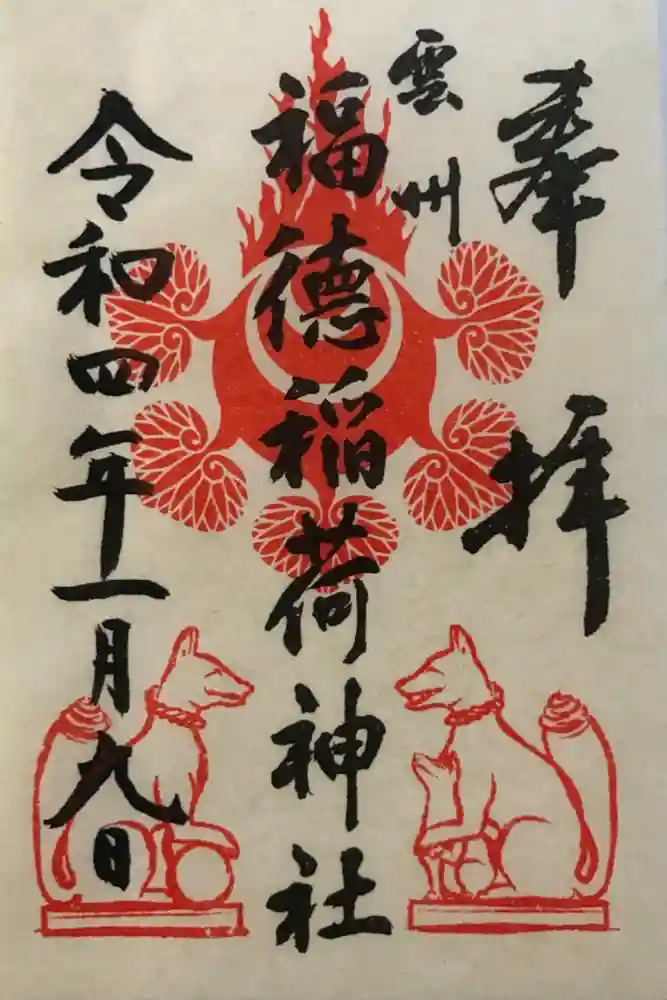 奉拝
雲州
福徳稲荷神社
令和四年一月九日